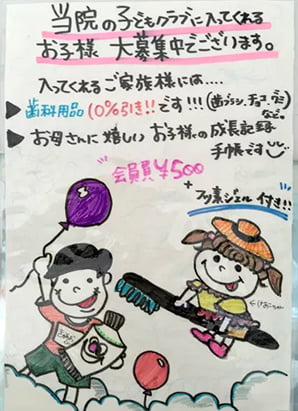 当院の子どもクラブに入ってくれる
お子様 大募集中でございます。
入ってくれるご家族様には....
▶歯科用品10%引き!!です!!! (歯ブラシ、チョコ、グミなど。)
▶お母さんに嬉しい お子様の成長記録
手帳です
会員費¥500
+
フッ素ジェル 付き!!